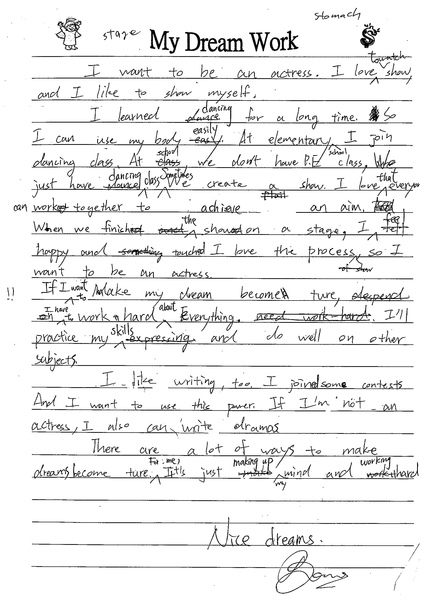 stomach
stage
My Dream Work
to watch
I want to be an actress. I love show,
and I like to show myself.
dancing
I learned dance for a long time. So
easily
I can use my body easy. At elementary I join
school
school
dancing class. At class we don't have P.E class,
dancing class Sometimes that
just have dance we create a show. I love everyone
can worked together to achieve an aim.
the feel
When we finished showed on a stage, I felt
happy and something touched I love the process, so I
of show
want to be an actress.
I want to
!! If Make my dream become ture,
I have to about
work hard Everything. need work hard. I'll
skills
practice my expressing and do well on other
subjects.
I like writing, too. I joined some contests
And I want to use this power. If I'm not an
actress, I also can write dramas
There are a lot of ways to make
For me, making up working
dreams become ture. It's just make mind and work hard
my
Nice dreams.